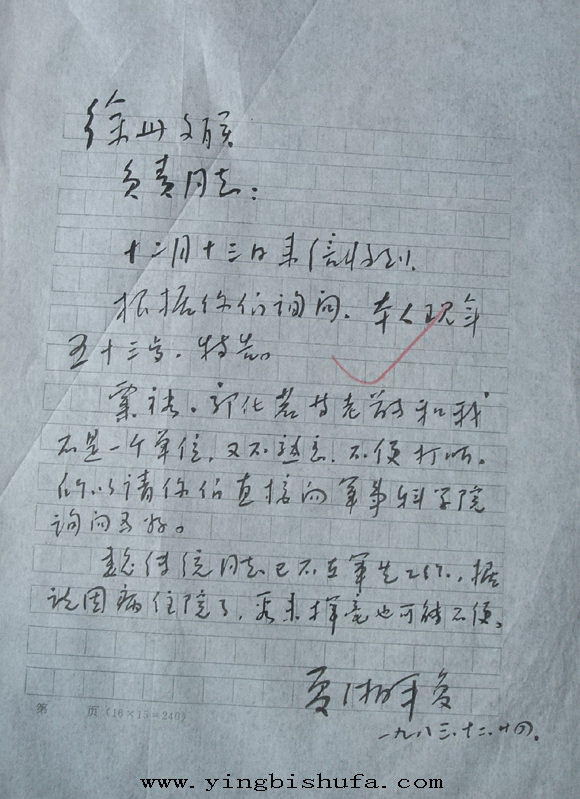 徐州文联
负责同志：
十二月十三日来信收到。
根据你们询问，本人现年
五十三岁，特告。
粟裕、郭化若等老前辈和我
不是一个单位，又不熟悉，不便打听。
所以请你们直接向军事科学院
询问为好。
传统同志已不在军先工作，据
说因病住院了，要来挥毫也可能不便。
夏湘平复
一九八三.十二.廿四.
第 页（16×15=240）
www.yingbishufa.com